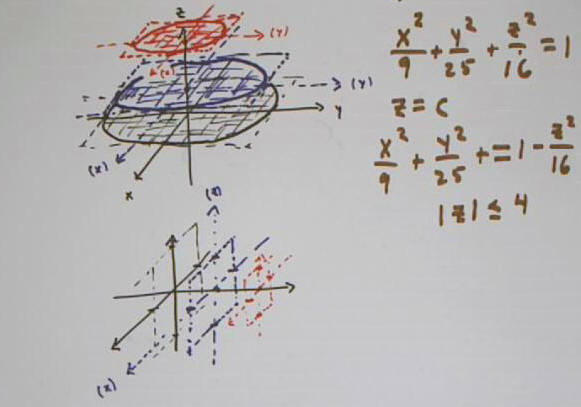 z
(y)
(y)
y
(x)
x
x²/9 + y²/25 + z²/16 = 1
z = c
x²/9 + y²/25 + = 1 - z²/16
|z| ≤ 4
(z)
(x)